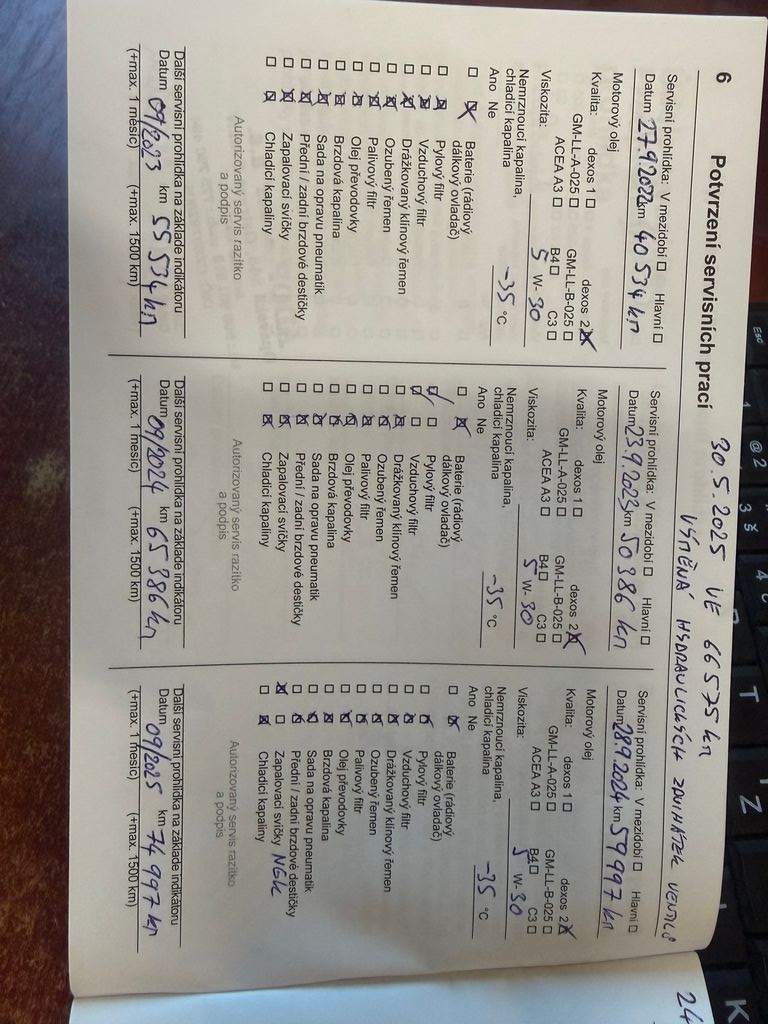 6 Potvrzení servisních prací
30.5.2025 VE 66575 km
VÝMĚNA HYDRAULICKÝCH ZDVIHÁTEK VENTILŮ
Servisní prohlídka: V mezidobí ☐ Hlavní ☐
Datum 27.9.2022 km 40 534 km
Motorový olej
Kvalita: dexos 1 ☐ dexos 2 ☒
GM-LL-A-025 ☐ GM-LL-B-025 ☐
ACEA A3 ☐ B4 ☐ C3 ☐
Viskozita: 5 W- 30
Nemrznoucí kapalina,
chladicí kapalina -35 °C
Ano Ne
☐ ☒ Baterie (rádiový
dálkový ovladač)
☐ ☒ Pylový filtr
☐ ☒ Vzduchový filtr
☐ ☒ Drážkovaný klínový řemen
☐ ☒ Ozubený řemen
☐ ☒ Palivový filtr
☐ ☒ Olej převodovky
☐ ☒ Brzdová kapalina
☐ ☒ Sada na opravu pneumatik
☐ ☒ Přední / zadní brzdové destičky
☐ ☒ Zapalovací svíčky
☐ ☒ Chladicí kapaliny
Autorizovaný servis razítko
a podpis
Další servisní prohlídka na základe indikátoru
Datum 09/2023 km 55 534 km
(+max. 1 měsíc) (+max. 1500 km)
Servisní prohlídka: V mezidobí ☐ Hlavní ☐
Datum 23.9.2023 km 50 386 km
Motorový olej
Kvalita: dexos 1 ☐ dexos 2 ☒
GM-LL-A-025 ☐ GM-LL-B-025 ☐
ACEA A3 ☐ B4 ☐ C3 ☐
Viskozita: 5 W- 30
Nemrznoucí kapalina,
chladicí kapalina -35 °C
Ano Ne
☐ ☒ Baterie (rádiový
dálkový ovladač)
☑ ☐ Pylový filtr
☑ ☐ Vzduchový filtr
☐ ☒ Drážkovaný klínový řemen
☐ ☒ Ozubený řemen
☐ ☒ Palivový filtr
☐ ☒ Olej převodovky
☐ ☒ Brzdová kapalina
☐ ☒ Sada na opravu pneumatik
☐ ☒ Přední / zadní brzdové destičky
☐ ☒ Zapalovací svíčky
☐ ☒ Chladicí kapaliny
Autorizovaný servis razítko
a podpis
Další servisní prohlídka na základe indikátoru
Datum 09/2024 km 65 386 km
(+max. 1 měsíc) (+max. 1500 km)
Servisní prohlídka: V mezidobí ☐ Hlavní ☐
Datum 28.9.2024 km 59 997 km
Motorový olej
Kvalita: dexos 1 ☐ dexos 2 ☒
GM-LL-A-025 ☐ GM-LL-B-025 ☐
ACEA A3 ☐ B4 ☐ C3 ☐
Viskozita: 5 W-30
Nemrznoucí kapalina,
chladicí kapalina -35 °C
Ano Ne
☐ ☒ Baterie (rádiový
dálkový ovladač)
☐ ☒ Pylový filtr
☐ ☒ Vzduchový filtr
☐ ☒ Drážkovaný klínový řemen
☐ ☒ Ozubený řemen
☐ ☒ Palivový filtr
☐ ☒ Olej převodovky
☐ ☒ Brzdová kapalina
☐ ☒ Sada na opravu pneumatik
☐ ☒ Přední / zadní brzdové destičky
☒ ☐ Zapalovací svíčky NGK
☐ ☒ Chladicí kapaliny
Autorizovaný servis razítko
a podpis
Další servisní prohlídka na základe indikátoru
Datum 09/2025 km 74 997 km
(+max. 1 měsíc) (+max. 1500 km)
24
Esc
1
@ 2
3 š
4
T
Z
K